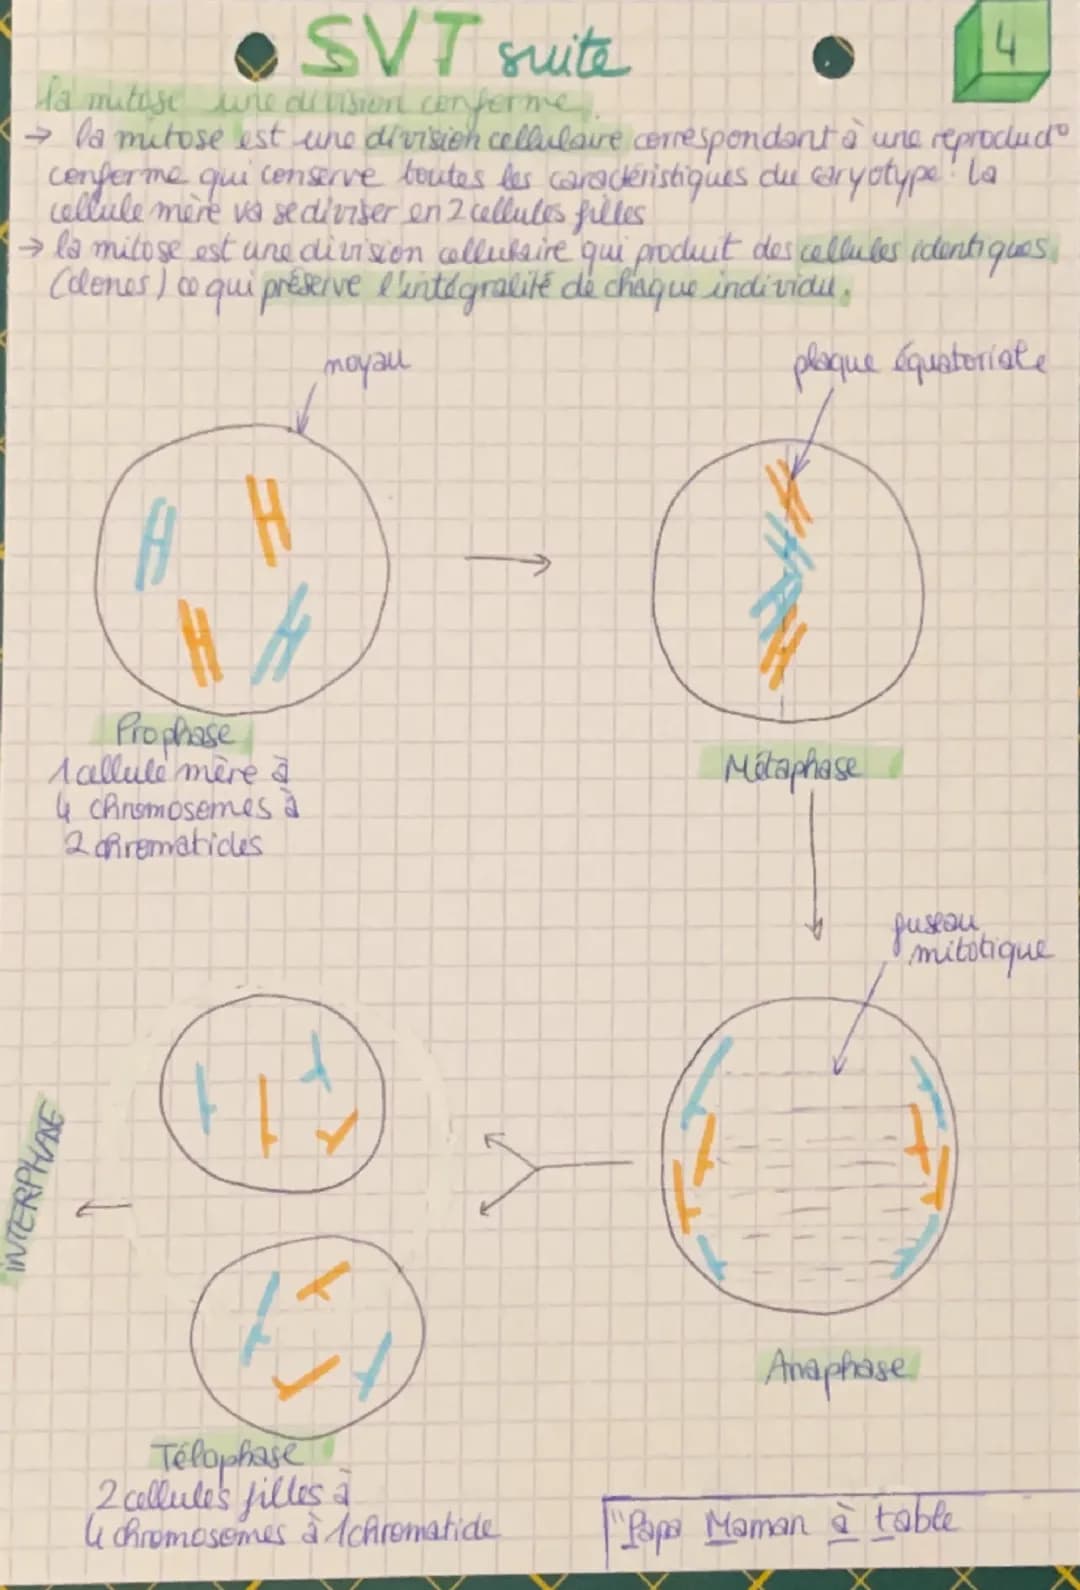 SVT suite
4
la mitose une division conferme
→ la mitose est une division cellulaire correspondant à une reproduct°
conferme qui conserve toutes les caractéristiques du caryotype. la
cellule mère va se diviser en 2 cellules filles
→ la mitose est une division cellulaire qui produit des cellules identiques
(clones) ce qui préserve l'intégralité de chaque individu.
noyau
plaque équatoriale
Prophase
1 cellule mère à
4 chromosomes à
2 chromatides
Métaphase
fuseau
mitotique
INTERPHASE
Anaphase
Télophase
2 cellules filles à
4 chromosomes à 1 chromatide
"Papa Maman à table